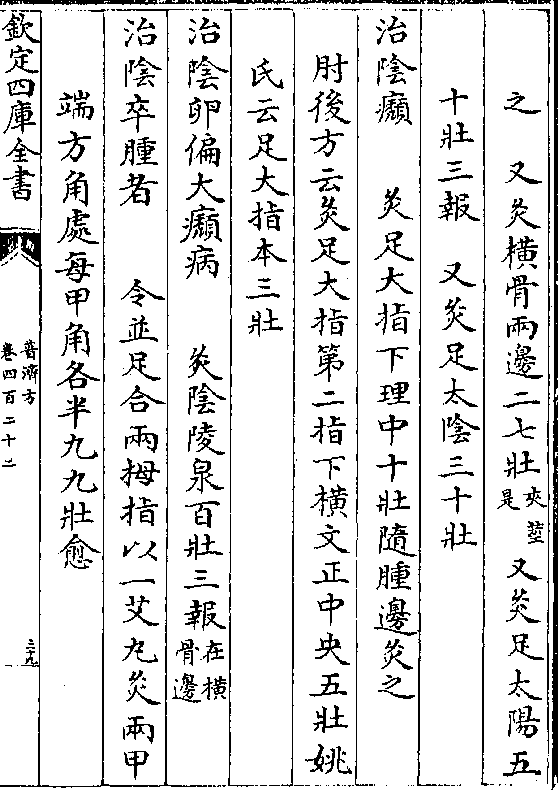 之　又灸橫骨兩邊二七壯夾莖是　又灸足太陽五
十壯三報　又灸足太陰三十壯
治陰癩　灸足大指下理中十壯隨腫邊灸之
肘後方云灸足大指第二指下橫文正中央五壯姚
氏云足大指本三壯
治陰卵偏大癩病　灸陰陵泉百壯三報在橫骨邊
治陰卒腫者　令並足合兩拇指以一艾丸灸兩甲
端方角處每甲角各半丸九壯愈
欽定四庫全書
普濟方
卷四百二十二
三九